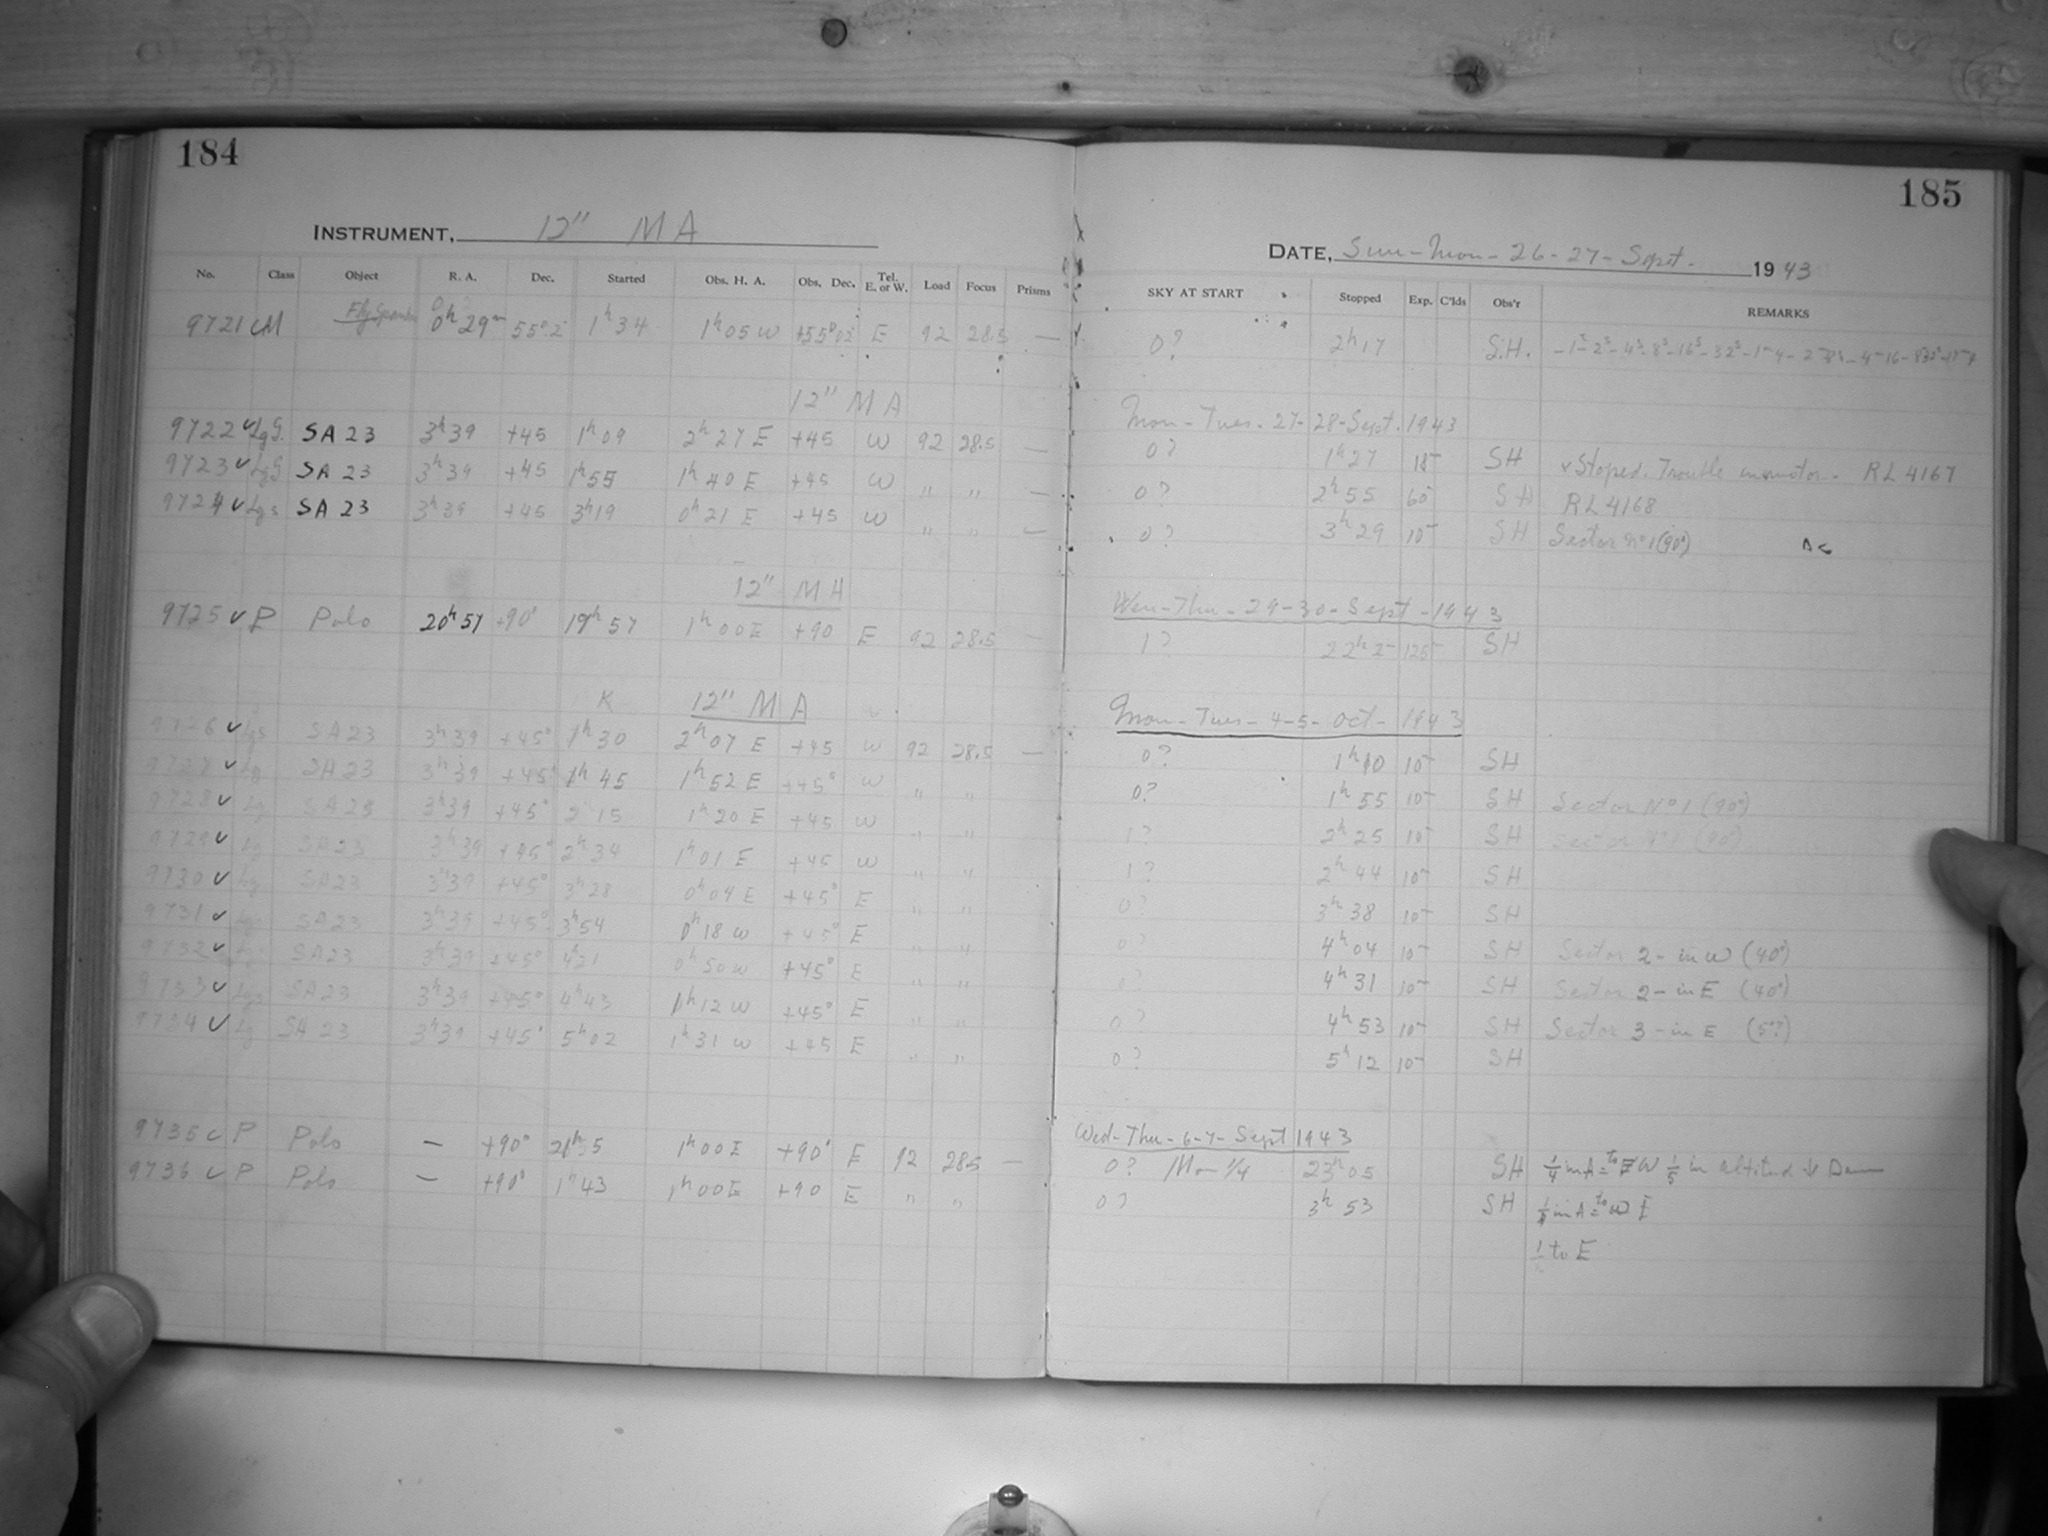 184
INSTRUMENT, 12" M A
No. Class Object R. A. Dec. Started Obs. H. A. Obs. Dec. Tel. E. or W. Load Focus Prisms
9721 M 0h 29m 55°.2 1h 34 1h 05 W +55°02 E 92 28.5 —
12" M A
9722 SA 23 3h 39 +45 1h 09 2h 27 E +45 W 92 28.5 —
9723 SA 23 3h 39 +45 1h 55 1h 40 E +45 W " " —
9724 SA 23 3h 39 +45 3h 19 0h 21 E +45 W " " —
12" M A
9725 P Polo 20h 57 +90° 19h 57 1h 00 E +90 E 92 28.5 —
K 12" M A
9726 SA 23 3h 39 +45° 1h 30 2h 07 E +45 W 92 28.5 —
9727 SA 23 3h 39 +45° 1h 45 1h 52 E +45° W " "
9728 SA 23 3h 39 +45° 2 15 1h 20 E +45 W " "
9729 SA 23 3h 39 +45° 2h 34 1h 01 E +45 W " "
9730 SA 23 3h 39 +45° 3h 28 0h 04 E +45° E " "
9731 SA 23 3h 39 +45° 3h 54 0h 18 W +45° E " "
9732 SA 23 3h 39 +45° 4h 21 0h 50 W +45° E " "
9733 SA 23 3h 39 +45° 4h 43 1h 12 W +45° E " "
9734 SA 23 3h 39 +45° 5h 02 1h 31 W +45 E " "
9735 P Polo — +90° 1h 00 E +90° E 92 28.5 —
9736 P Polo — +90° 1h 43 1h 00 E +90 E " "
185
DATE, Sun - Mon - 26 - 27 - Sept. 1943
SKY AT START Stopped Exp. C'lds Obs'r REMARKS
0? 2h 17 S.H.
Mon - Tues. 27-28-Sept. 1943
0? 1h 27 18 SH Stoped. Trouble RL 4167
0? 2h 55 60 SH RL 4168
0? 3h 29 10 SH Sector Nº 1 (90°)
Wen - Thu - 29-30 - Sept - 1943
1? 22h 2 125 SH
Mon - Tues - 4-5 - Oct - 1943
0? 10 SH
0? 1h 55 10 SH Sector Nº 1 (90°)
1? 2h 25 10 SH Sector Nº 1 (90°)
1? 2h 44 10 SH
0? 3h 38 10 SH
0? 4h 04 10 SH Sector 2 - in W (40°)
0? 4h 31 10 SH Sector 2 - in E (40°)
0? 4h 53 10 SH Sector 3 - in E (5°?)
0? 5h 12 10 SH
Wed - Thu - 6-7 - Sept 1943
0? 23h 05 SH 1/4 in A = to W 1/5 in altitud
0? 3h 53 SH in A = to
to E